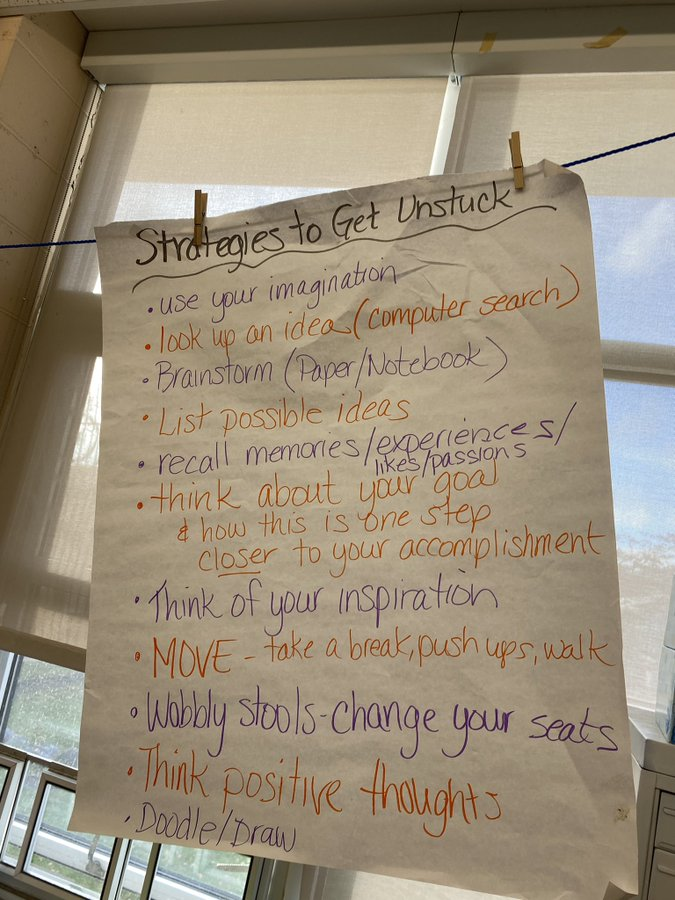 Strategies to Get Unstuck
• use your imagination
• look up an idea (computer search)
• Brainstorm (Paper/Notebook)
• List possible ideas
• recall memories/experiences/
likes/passions
• think about your goal
& how this is one step
closer to your accomplishment
• Think of your inspiration
• MOVE - take a break, push ups, walk
• Wobbly stools - change your seats
• Think positive thoughts
• Doodle/Draw